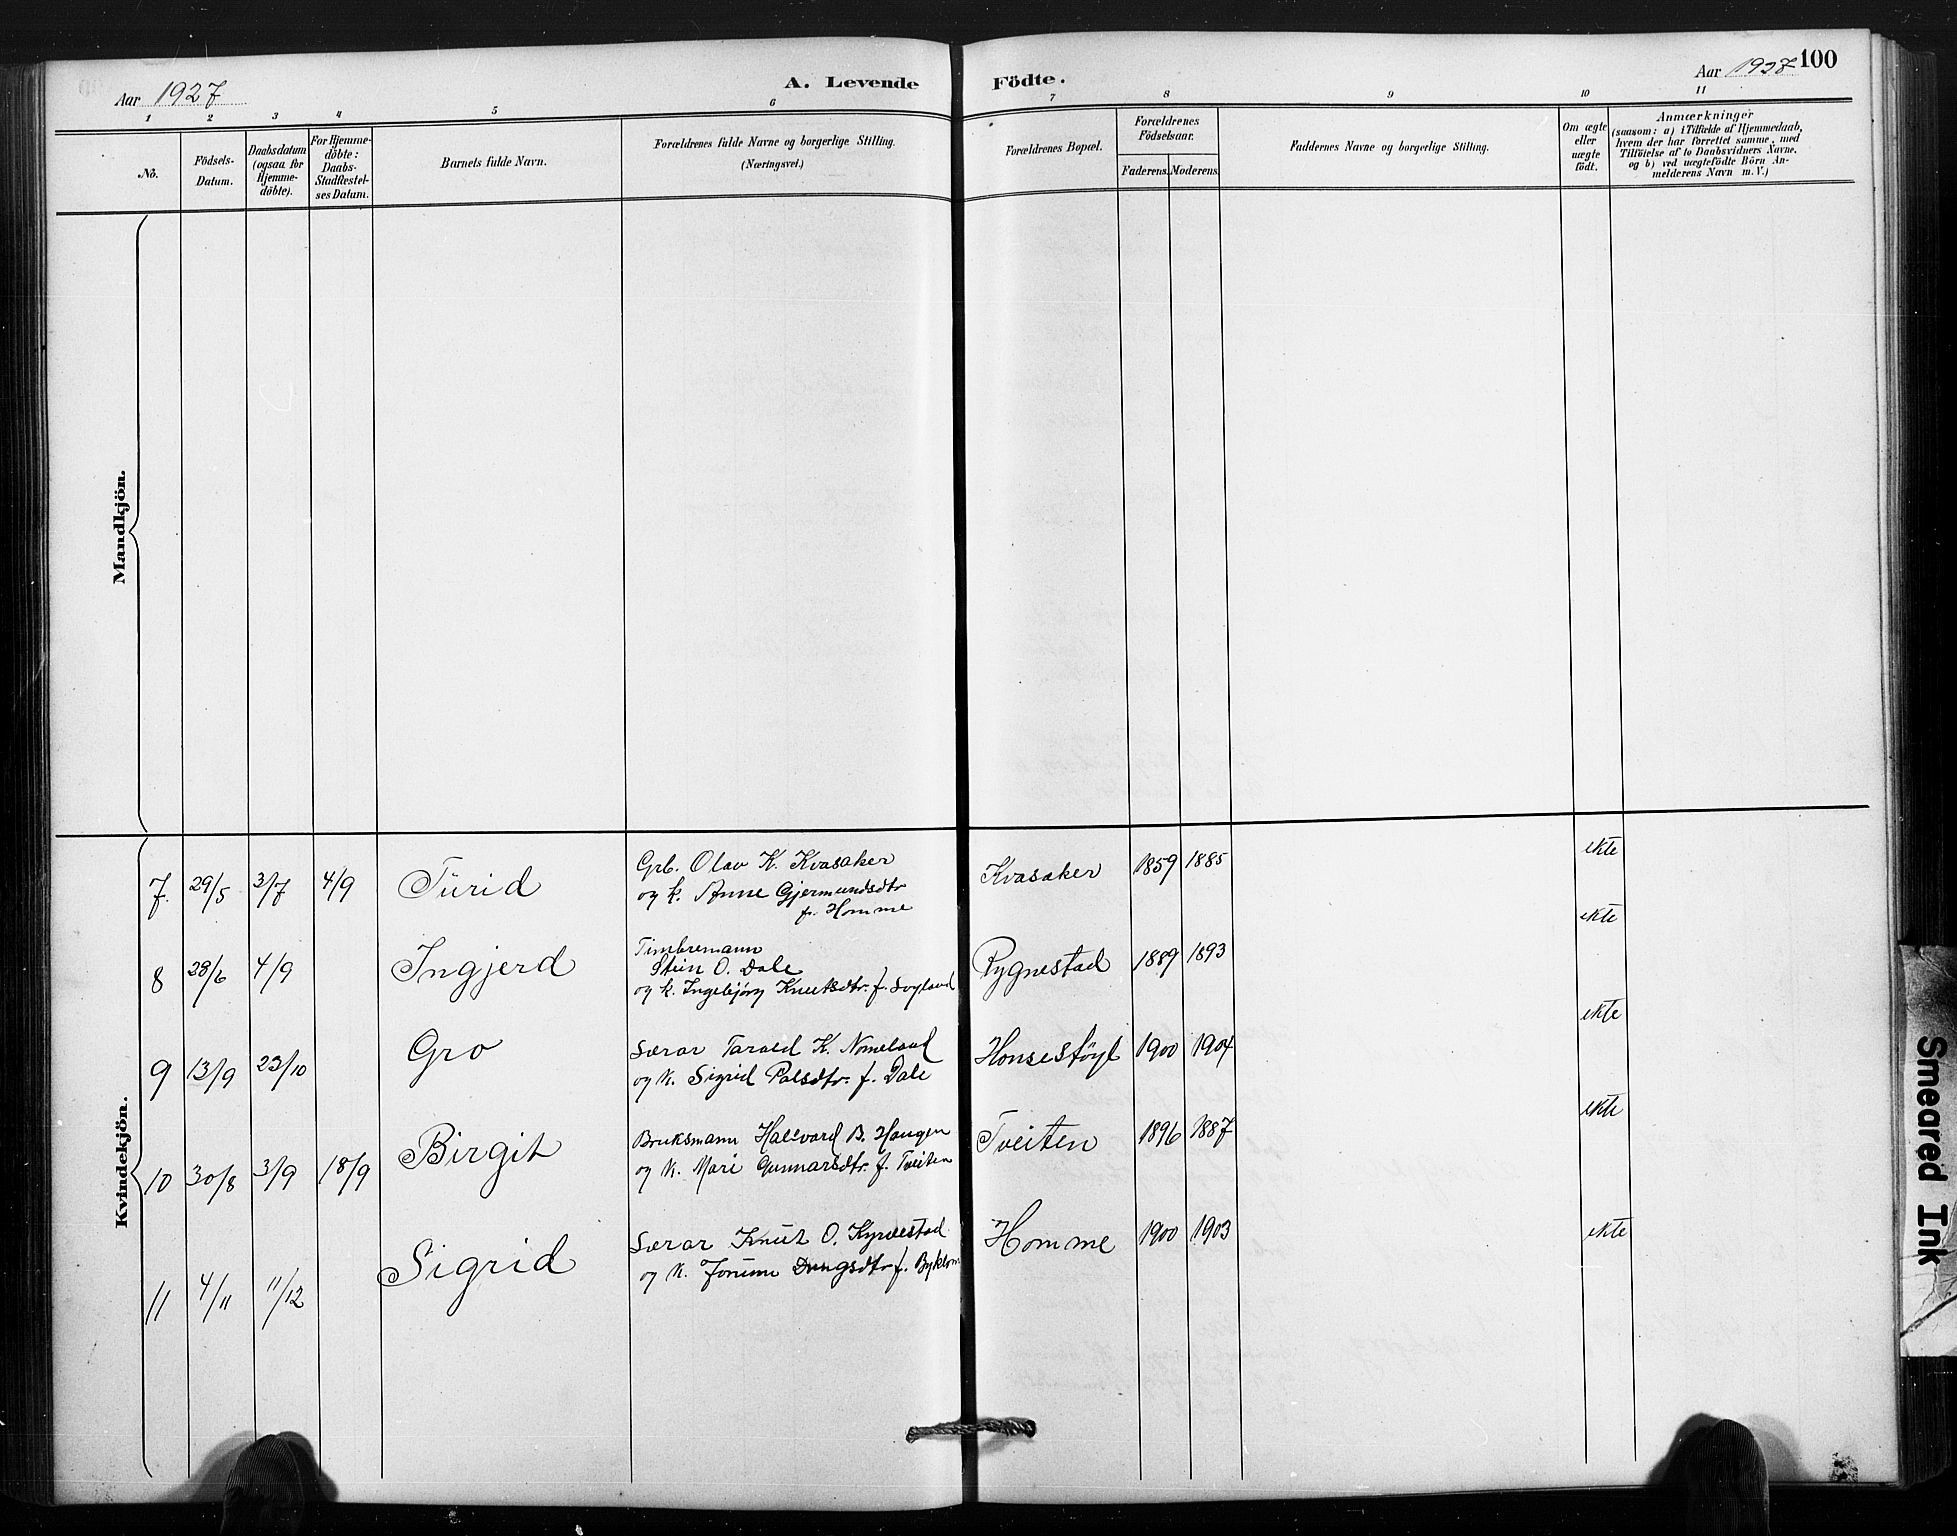 Aar 1927
A. Levende Födte.
Aar 1927
100
1 2 3 4 5 6 7 8 9 10 11
No.
Födsels-
Datum.
Daabsdatum
(ogsaa for
Hjemme-
döbte).
For Hjemme-
döbte:
Daabs-
Stadfæstel-
ses Datum.
Barnets fulde Navn.
Forældrenes fulde Navne og borgerlige Stilling.
(Næringsvei.)
Forældrenes Bopæl.
Forældrenes
Födselsaar.
Faderens. Moderens.
Faddernes Navne og borgerlige Stilling.
Om ægte
eller
uægte
födt.
Anmærkninger
(saasom: a) i Tilfælde af Hjemmedaab,
hvem der har forrettet samme, med
Tilföielse af to Daabsvidners Navne.
og b) ved uægtefödte Börn An-
melderens Navn m. V.)
Mandkjön.
Kvindekjön.
7. 29/5 3/7 4/9 Turid
Grb. Olav K. Kvasaker
og k. Anne Gjermundsdtr
f. Homme
Kvasaker 1859 1885 ekte
8 28/6 4/9 Ingjerd
Timbremann
Stein O. Dale
og k. Ingebjörg Knutsdtr. f.
Rygnestad 1889 1893 ekte
9 13/9 23/10 Gro
Lærar Tarald K. Nomeland
og k. Sigrid Palsdtr. f. Dale
1900 1904 ekte
10 30/8 3/9 18/9 Birgit
Bruksmann Hallvard B. Haugen
og k. Mari Gunnarsdtr. f. Tveiten
Tveiten 1896 1887 ekte
11 4/11 11/12 Sigrid
Lærar Knut O. Kyrvestad
og k. Jorunn f. Byklum
Homme 1900 1903 ekte
Smeared Ink